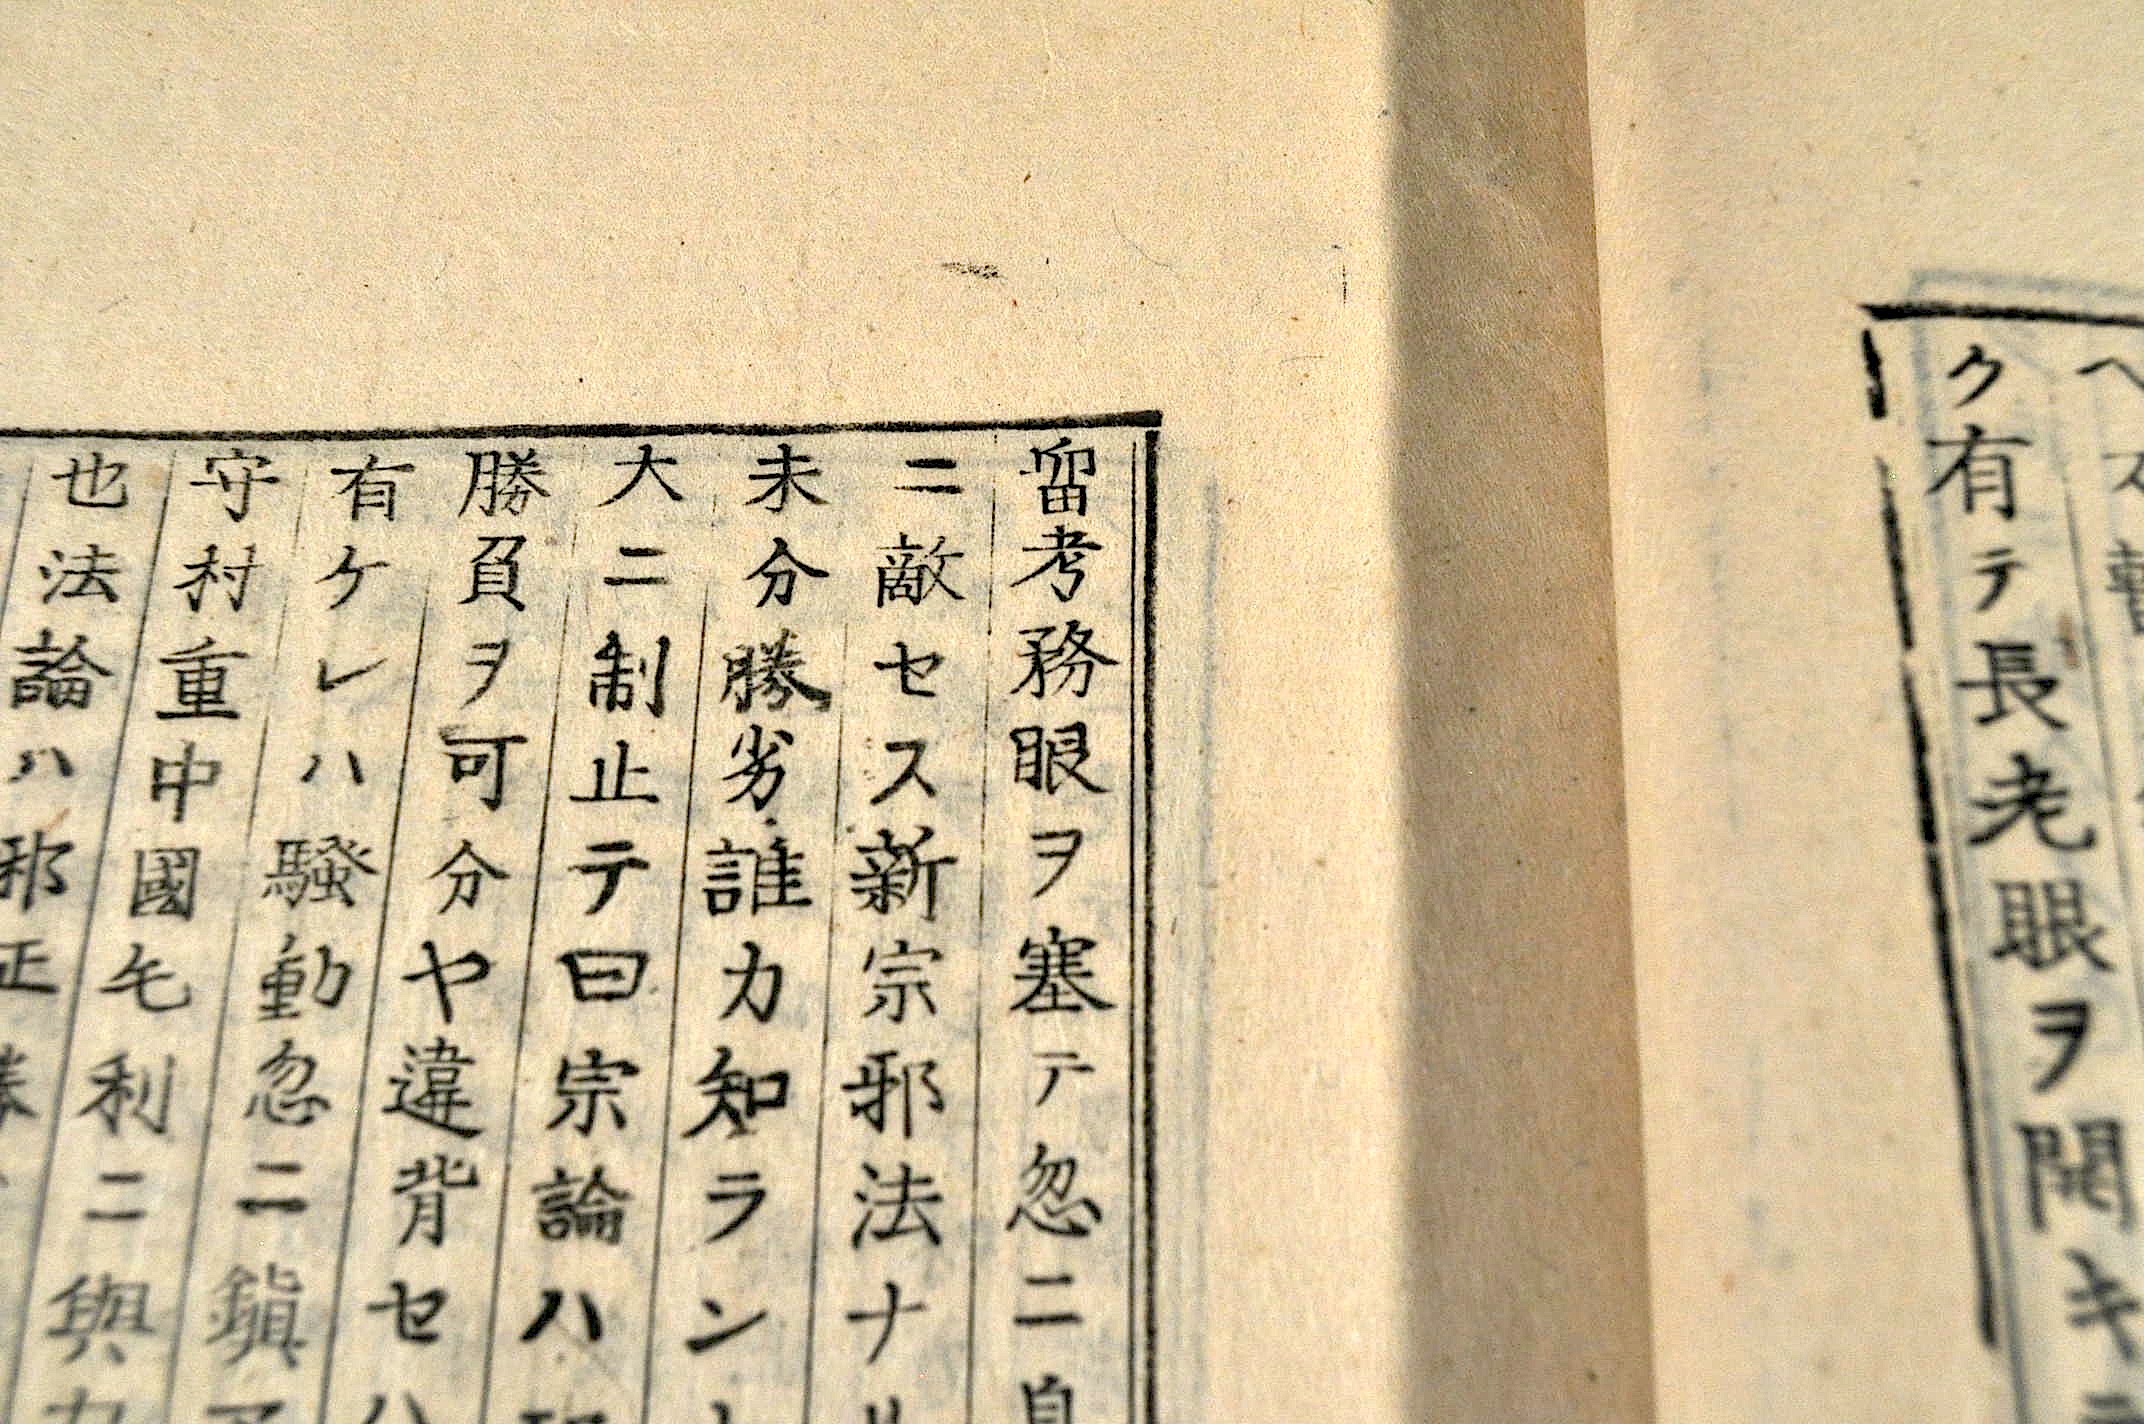 ク有テ長老眼ヲ開キ
留考務眼ヲ塞テ忽ニ自
ニ敵セス新宗邪法ナル
未分勝劣誰カ知ラン
大ニ制止テ曰宗論ハ
勝負ヲ可分ヤ違背セハ
有ケレハ騒動忽ニ鎭
守村重中國毛利ニ與力
也法論ハ邪正